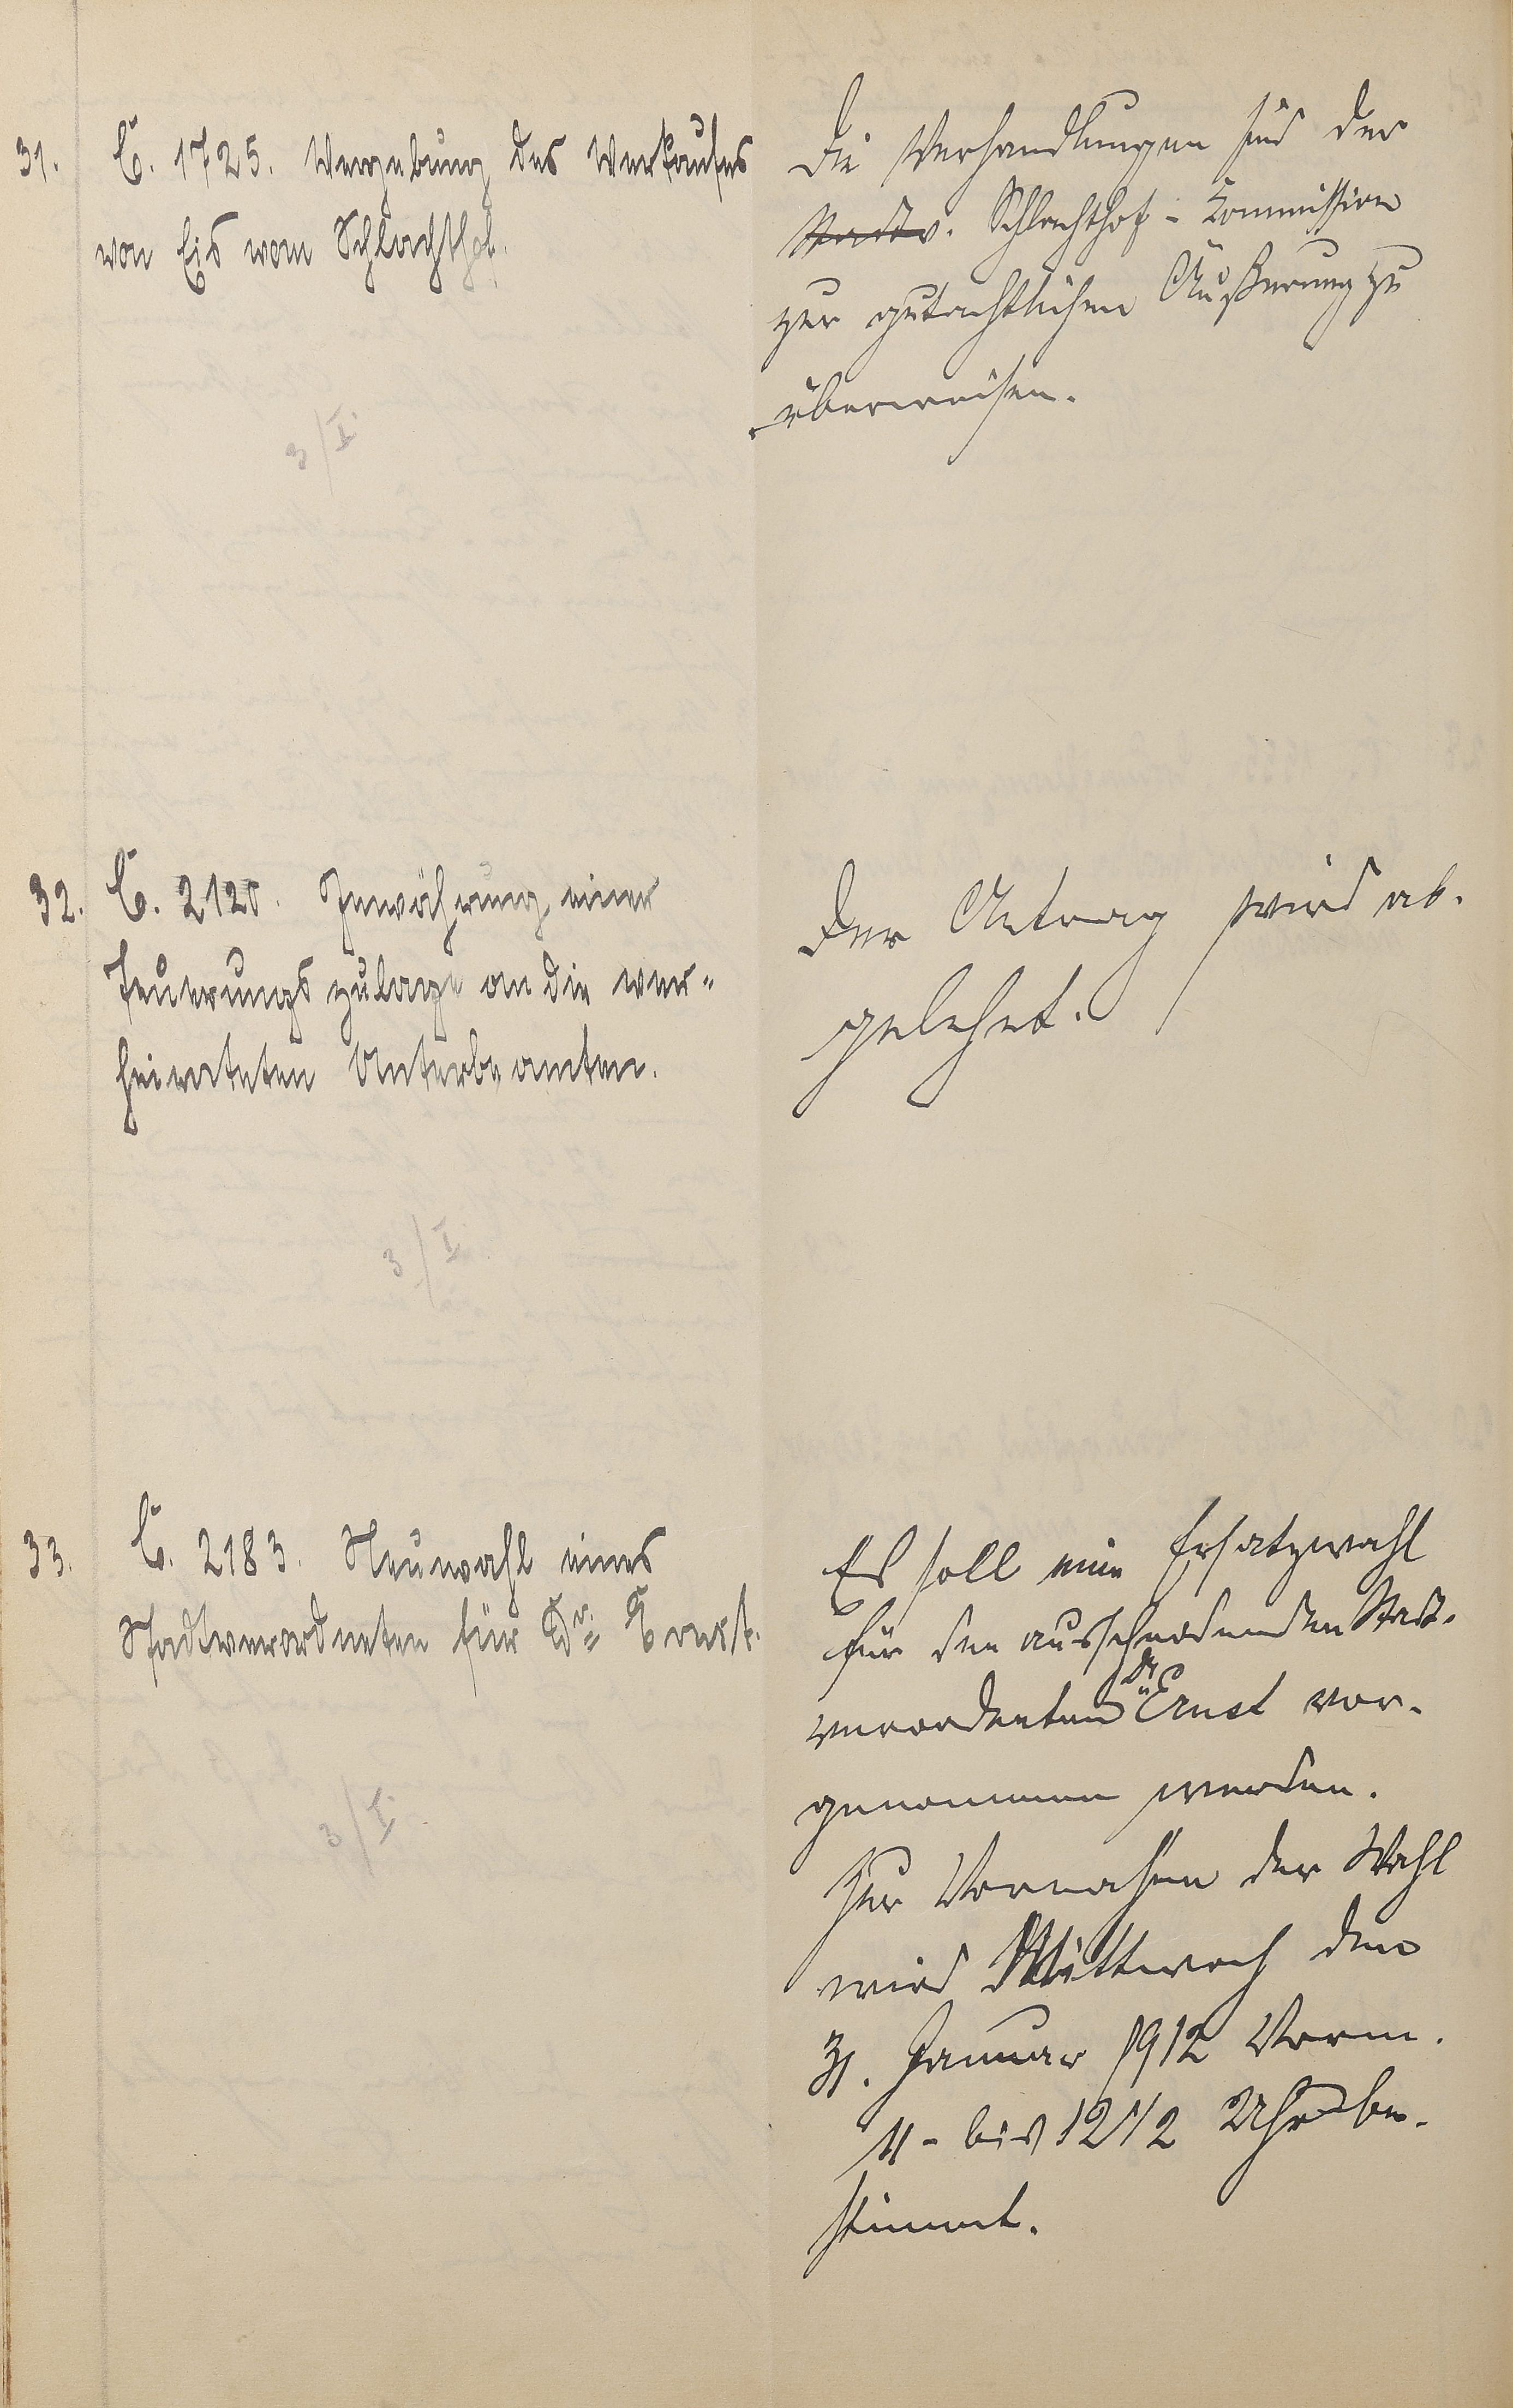 31. C. 1725. Vergebung des Verkaufes
von Eis vom Schlachthof.
Die Verhandlungen sind der
Stadtv. Schlachthof-Kommission
zur gutachtlichen Äußerung zu
überweisen.
3/I.
32. C. 2120. Gewährung einer
Teuerungszulage an die ver-
heirateten Unterbeamten.
Der Antrag wird ab-
gelehnt.
3/I.
33. C. 2183. Neuwahl eines
Stadtverordneten für Dr. Ernst.
Es soll eine Ersatzwahl
für den ausscheidenden Stadt-
verordneten Dr Ernst vor-
genommen werden.
Zur Vornahme der Wahl
wird Mittwoch den
31. Januar 1912 Vorm.
11 - bis 12 1/2 Uhr be-
stimmt.
3/I.